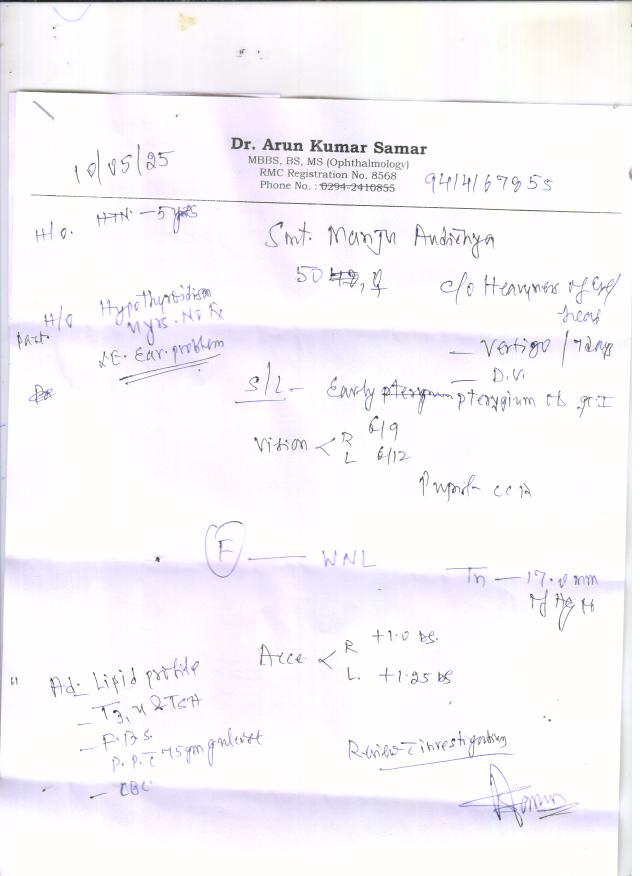 Dr. Arun Kumar Samar
MBBS, BS, MS (Ophthalmology)
RMC Registration No. 8568
Phone No. : 0294-2410855
10/05/25
H/o. HTN - 5 yrs
Smt. Manju
50, ♀
C/o Heaviness of
H/o Hypothyroidism
past
No Rx
LE. Ear problem
- Vertigo / 7 days
- D.V.
S/L - Early pterygium gr. I
Vision < R 6/9
L 6/12
Pupil
F — WNL
Tn - 17.0 mm
of Hg
Acce < R +1.0 DS.
L. +1.25 DS
Ad: Lipid profile
- T3, 4 & TSH
- F.B.S.
P.P. c 75gm
- CBC
Review c investigations